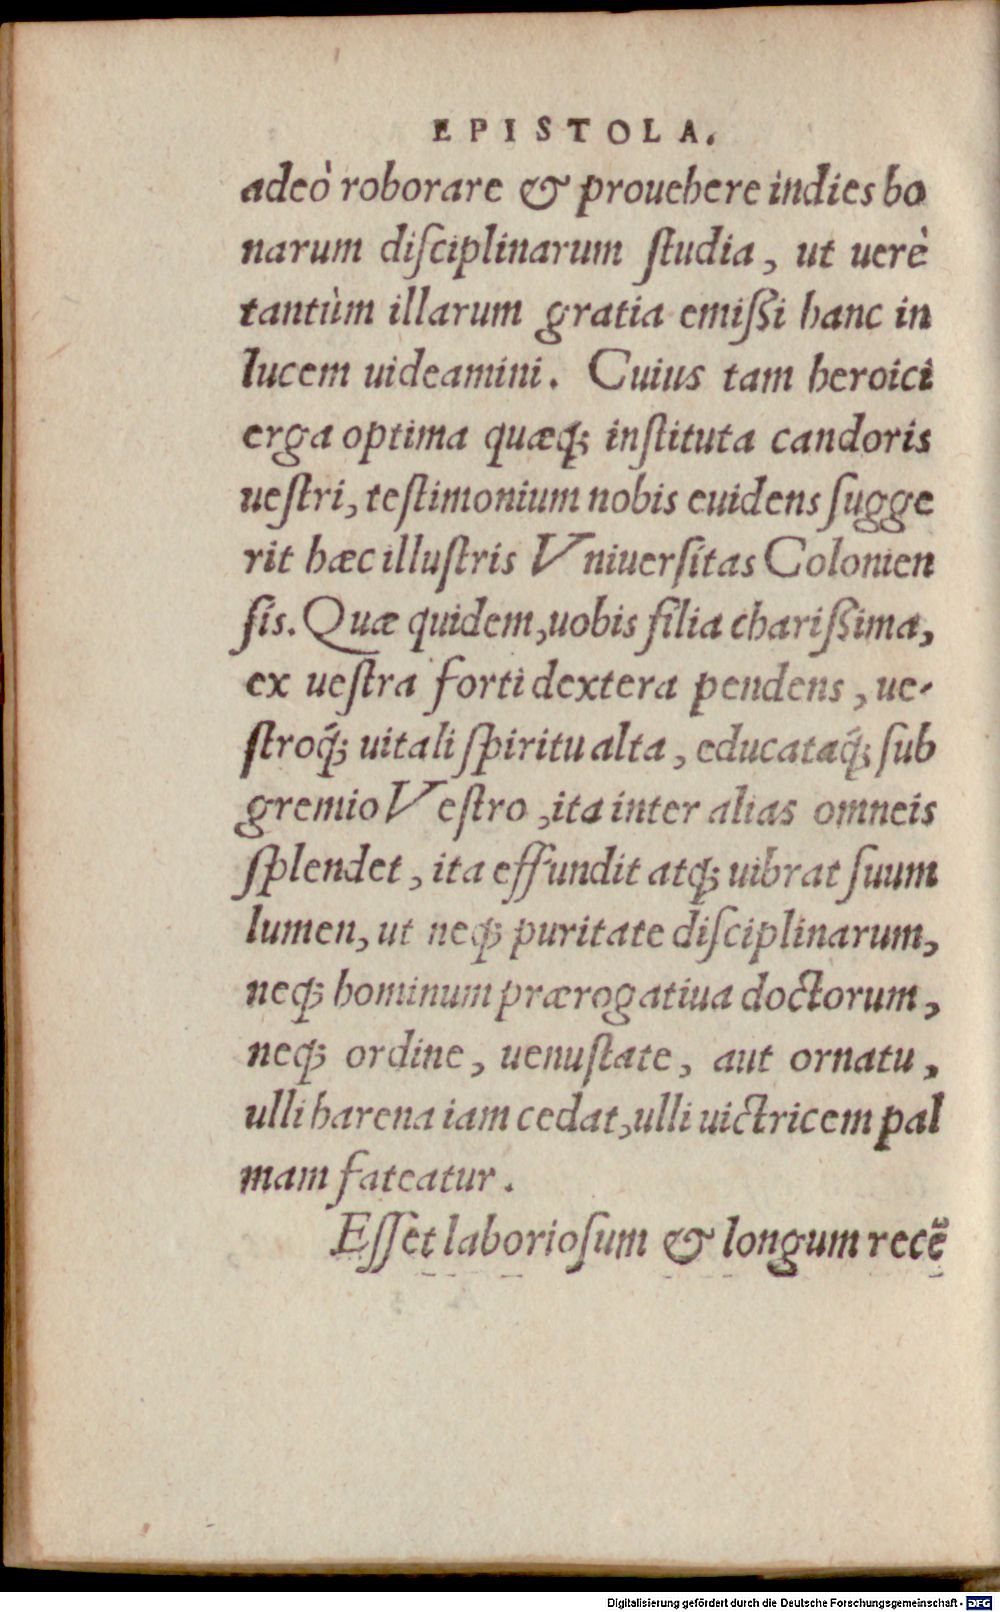 EPISTOLA.
adeò roborare & prouehere indies bo
narum diſciplinarum ſtudia, ut uerè
tantùm illarum gratia emiſſi hanc in
lucem uideamini. Cuius tam heroici
erga optima quæq́; inſtituta candoris
ueſtri, teſtimonium nobis euidens ſugge
rit hæc illuſtris Vniuerſitas Colonien
ſis. Quæ quidem, uobis filia chariſſima,
ex ueſtra forti dextera pendens, ue-
ſtroq́; uitali ſpiritu alta, educataq́; ſub
gremio Veſtro, ita inter alias omneis
ſplendet, ita effundit atq; uibrat ſuum
lumen, ut neq; puritate diſciplinarum,
neq; hominum prærogatiua doctorum,
neq; ordine, uenuſtate, aut ornatu,
ulli harena iam cedat, ulli uictricem pal
mam fateatur.
Eſſet laborioſum & longum recē
Digitalisierung gefördert durch die Deutsche Forschungsgemeinschaft - DFG